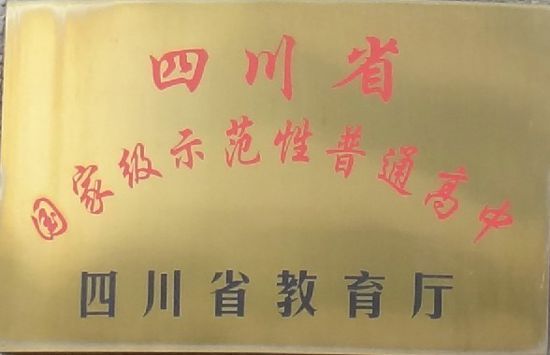 四川省
国家级示范性普通高中
四川省教育厅